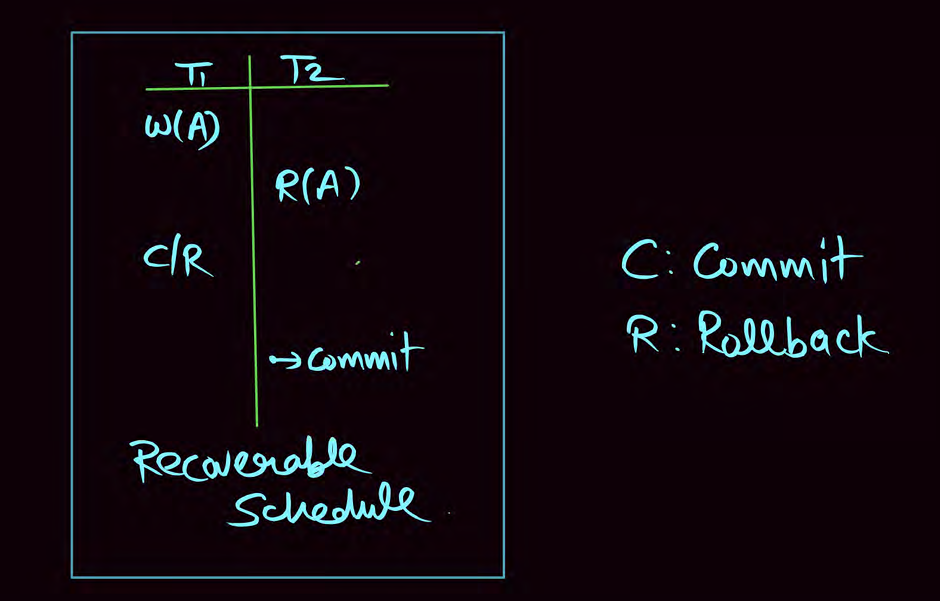 T1 T2
W(A)
R(A)
C/R
→ Commit
Recoverable
Schedule.
C: Commit
R: Rollback